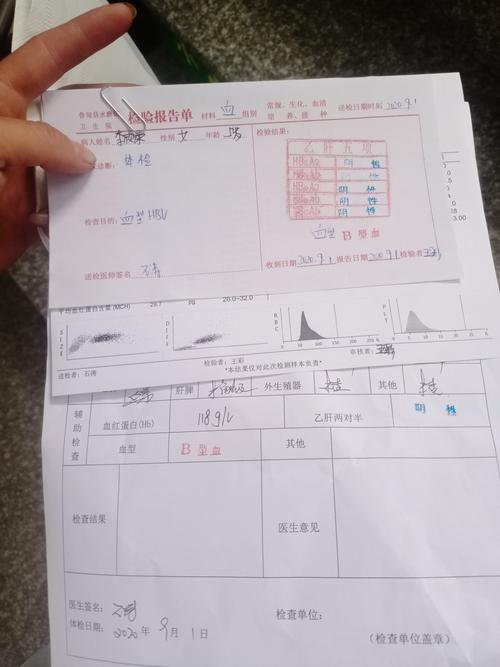 鲁甸县水磨镇
卫生院 检验报告单 材料 血 组别 常规、生化、血清 培养、接种 送检日期时间 2020.9.1
病人姓名 性别 女 年龄
诊断: 体检
检查目的: 血型 HBV
送检医师签名
检验结果:
乙肝五项
HBsAg 阴性
阴性
阴性
阴性
阴性
血型 B 型血
收到日期 2020.9.1 报告日期 2020.9.1 检验者
平均红蛋白含量(MCH) 28.7 Pg 26.0-32.0
3.00
SIZE
DIFF
RBC
PLT
50 100 200 300
5 10 20 30
送检者: 石涛 检验者: 王彩 审核者:
*本结果仅对此次检测样本负责*
肝脾 外生殖器 其他
辅助检查
血红蛋白(Hb) 118g/L 乙肝两对半 阴性
血型 B 型血 其他
检查结果 医生意见
医生签名:
体检日期: 2020 年 9 月 1 日
检查单位:
(检查单位盖章)